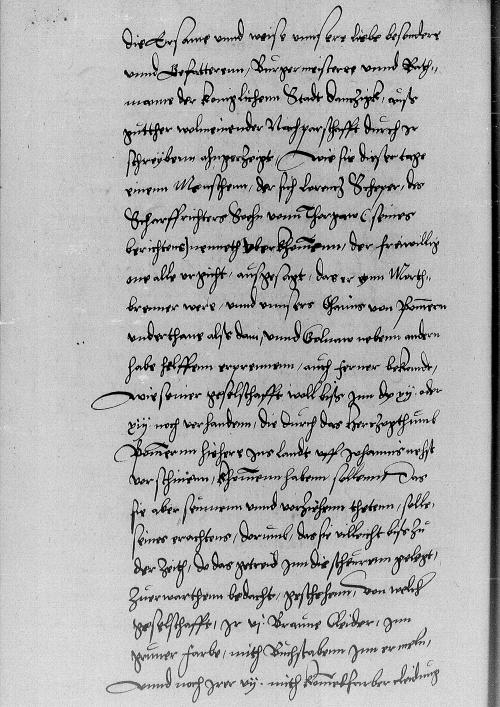 die Ersame unnd weise unnsere liebe besondere
unnd Gefatterenn, Burgermeistere unnd Rath-
manne der koniglichenn Stadt Dantzigk, auss
gutther wolmeinender Nachparschafft durch Ir
schreybenn ahngezeigt, Wie sie dieser tage
einenn Menschenn, der sich Lorentz Scheper, des
Scharffrichters Sohn vonn Thorgaw (seines
berichtens) nenneth uberkhomenn, der freiwillig
one alle urgicht, aussgesagt, das er ein Morth-
brenner were, unnd unnsers Ohaims von Pomern
underthane alss Dam, unnd Golnaw nebenn andern
habe helffenn erprennenn, auch ferner bekandt,
Wie seiner geselschafft woll biss Inn die xij oder
xiij noch vorhandenn, die durch das Herzogthumb
Pomernn hiehere Ins landt uff Johannis nehst
vorschinenn, khomenn habenn sollenn Das
sie aber seumenn unnd vorziehenn thetenn, solle
seines erachtens, dorumb, das sie villeicht biss zu
der Zeith, do das getreid Inn die scheurenn gelegt,
Zuerwarthenn bedacht, geschehenn, von welcher
geselschafft, Ir vj Braune Cleider, Inn
gruner farbe, mith Buchstabenn Inn ermeln,
Unnd noch Irer vij mith farber cleidung